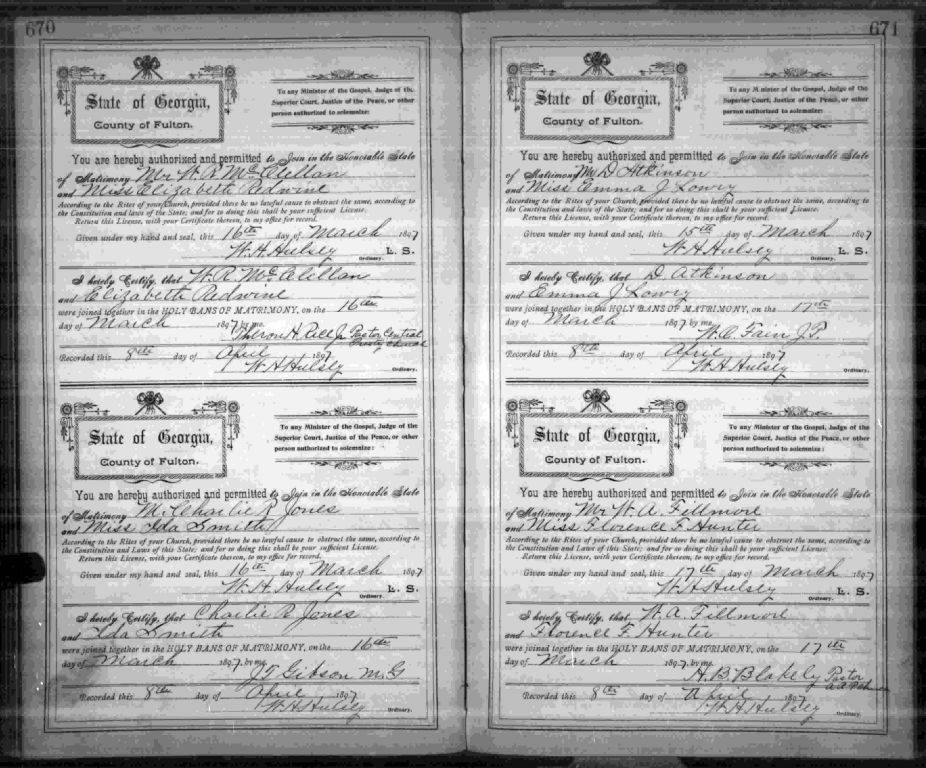 670
State of Georgia,
County of Fulton.
To any Minister of the Gospel, Judge of the
Superior Court, Justice of the Peace, or other
person authorized to solemnize:
You are hereby authorized and permitted to Join in the Honorable State
of Matrimony Mr W. R. McClellan
and Miss Elizabeth Redwine
According to the Rites of your Church, provided there be no lawful cause to obstruct the same, according to
the Constitution and laws of the State; and for so doing this shall be your sufficient License.
Return this License, with your Certificate thereon, to my office for record.
Given under my hand and seal, this 16th day of March 1897
W. H. Hulsey L. S.
Ordinary.
I hereby Certify, that W. R. McClellan
and Elizabeth Redwine
were joined together in the HOLY BANS OF MATRIMONY, on the 16th
day of March 1897, by me.
Theron H. Rice Jr Pastor Central
Church
Recorded this 8th day of April 1897
W H Hulsey Ordinary.
State of Georgia,
County of Fulton.
To any Minister of the Gospel, Judge of the
Superior Court, Justice of the Peace, or other
person authorized to solemnize:
You are hereby authorized and permitted to Join in the Honorable State
of Matrimony Mr Charlie R Jones
and Miss Ida Smith
According to the Rites of your Church, provided there be no lawful cause to obstruct the same, according to
the Constitution and Laws of this State; and for so doing this shall be your sufficient License.
Return this License, with your Certificate thereon, to my office for record.
Given under my hand and seal, this 16th day of March 1897
W. H. Hulsey L. S.
Ordinary.
I hereby Certify, that Charlie R Jones
and Ida Smith
were joined together in the HOLY BANS OF MATRIMONY, on the 16th
day of March 1897, by me.
Gibson M.G
Recorded this 8th day of April 1897
W H Hulsey Ordinary.
671
State of Georgia,
County of Fulton.
To any Minister of the Gospel, Judge of the
Superior Court, Justice of the Peace, or other
person authorized to solemnize:
You are hereby authorized and permitted to Join in the Honorable State
of Matrimony Mr D Atkinson
and Miss Emma J Lowry
According to the Rites of your Church, provided there be no lawful cause to obstruct the same, according to
the Constitution and laws of the State; and for so doing this shall be your sufficient License.
Return this License, with your Certificate thereon, to my office for record.
Given under my hand and seal, this 15th day of March 1897
W. H. Hulsey L. S.
Ordinary.
I hereby Certify, that D. Atkinson
and Emma J Lowry
were joined together in the HOLY BANS OF MATRIMONY, on the 17th
day of March 1897, by me.
Fain J.P.
Recorded this 8th day of April 1897
W H Hulsey Ordinary.
State of Georgia,
County of Fulton.
To any Minister of the Gospel, Judge of the
Superior Court, Justice of the Peace, or other
person authorized to solemnize:
You are hereby authorized and permitted to Join in the Honorable State
of Matrimony Mr W. A. Fillmore
and Miss Florence F Hunter
According to the Rites of your Church, provided there be no lawful cause to obstruct the same, according to
the Constitution and Laws of this State; and for so doing this shall be your sufficient License.
Return this License, with your Certificate thereon, to my office for record.
Given under my hand and seal, this 17th day of March 1897
W H Hulsey L. S.
Ordinary.
I hereby Certify, that W. A. Fillmore
and Florence F. Hunter
were joined together in the HOLY BANS OF MATRIMONY, on the 17th
day of March 1897, by me.
H. B. Blakely Pastor
Recorded this 8th day of April 1897
W H Hulsey Ordinary.